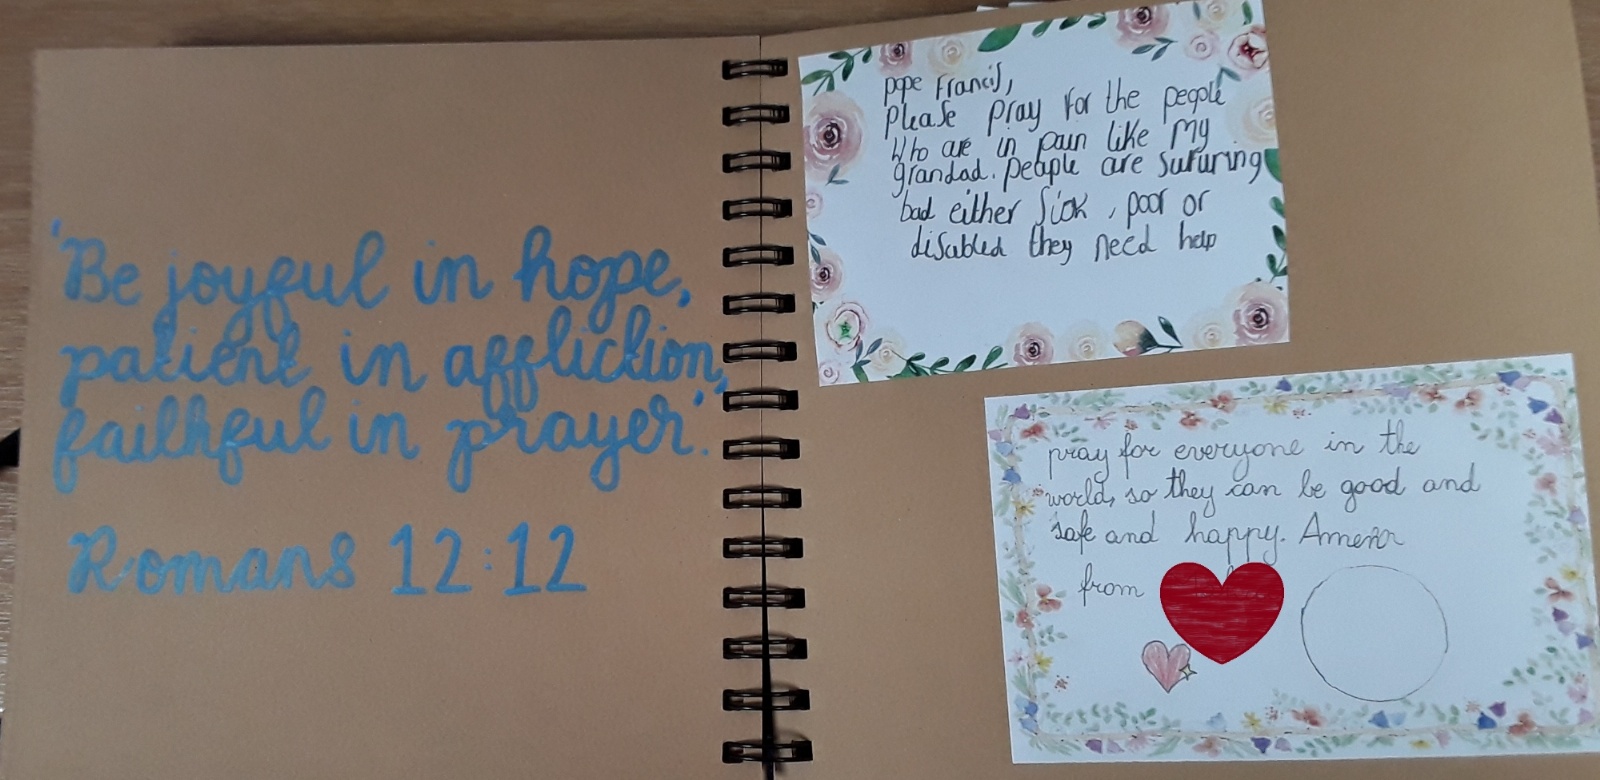 'Be joyful in hope,
patient in affliction,
faithful in prayer'.
Romans 12:12
pope Francis,
please pray for the people
who are in pain like my
grandad. people are sufuring
bad either sick, poor or
disabled they need help
pray for everyone in the
world, so they can be good and
safe and happy. Amen
from